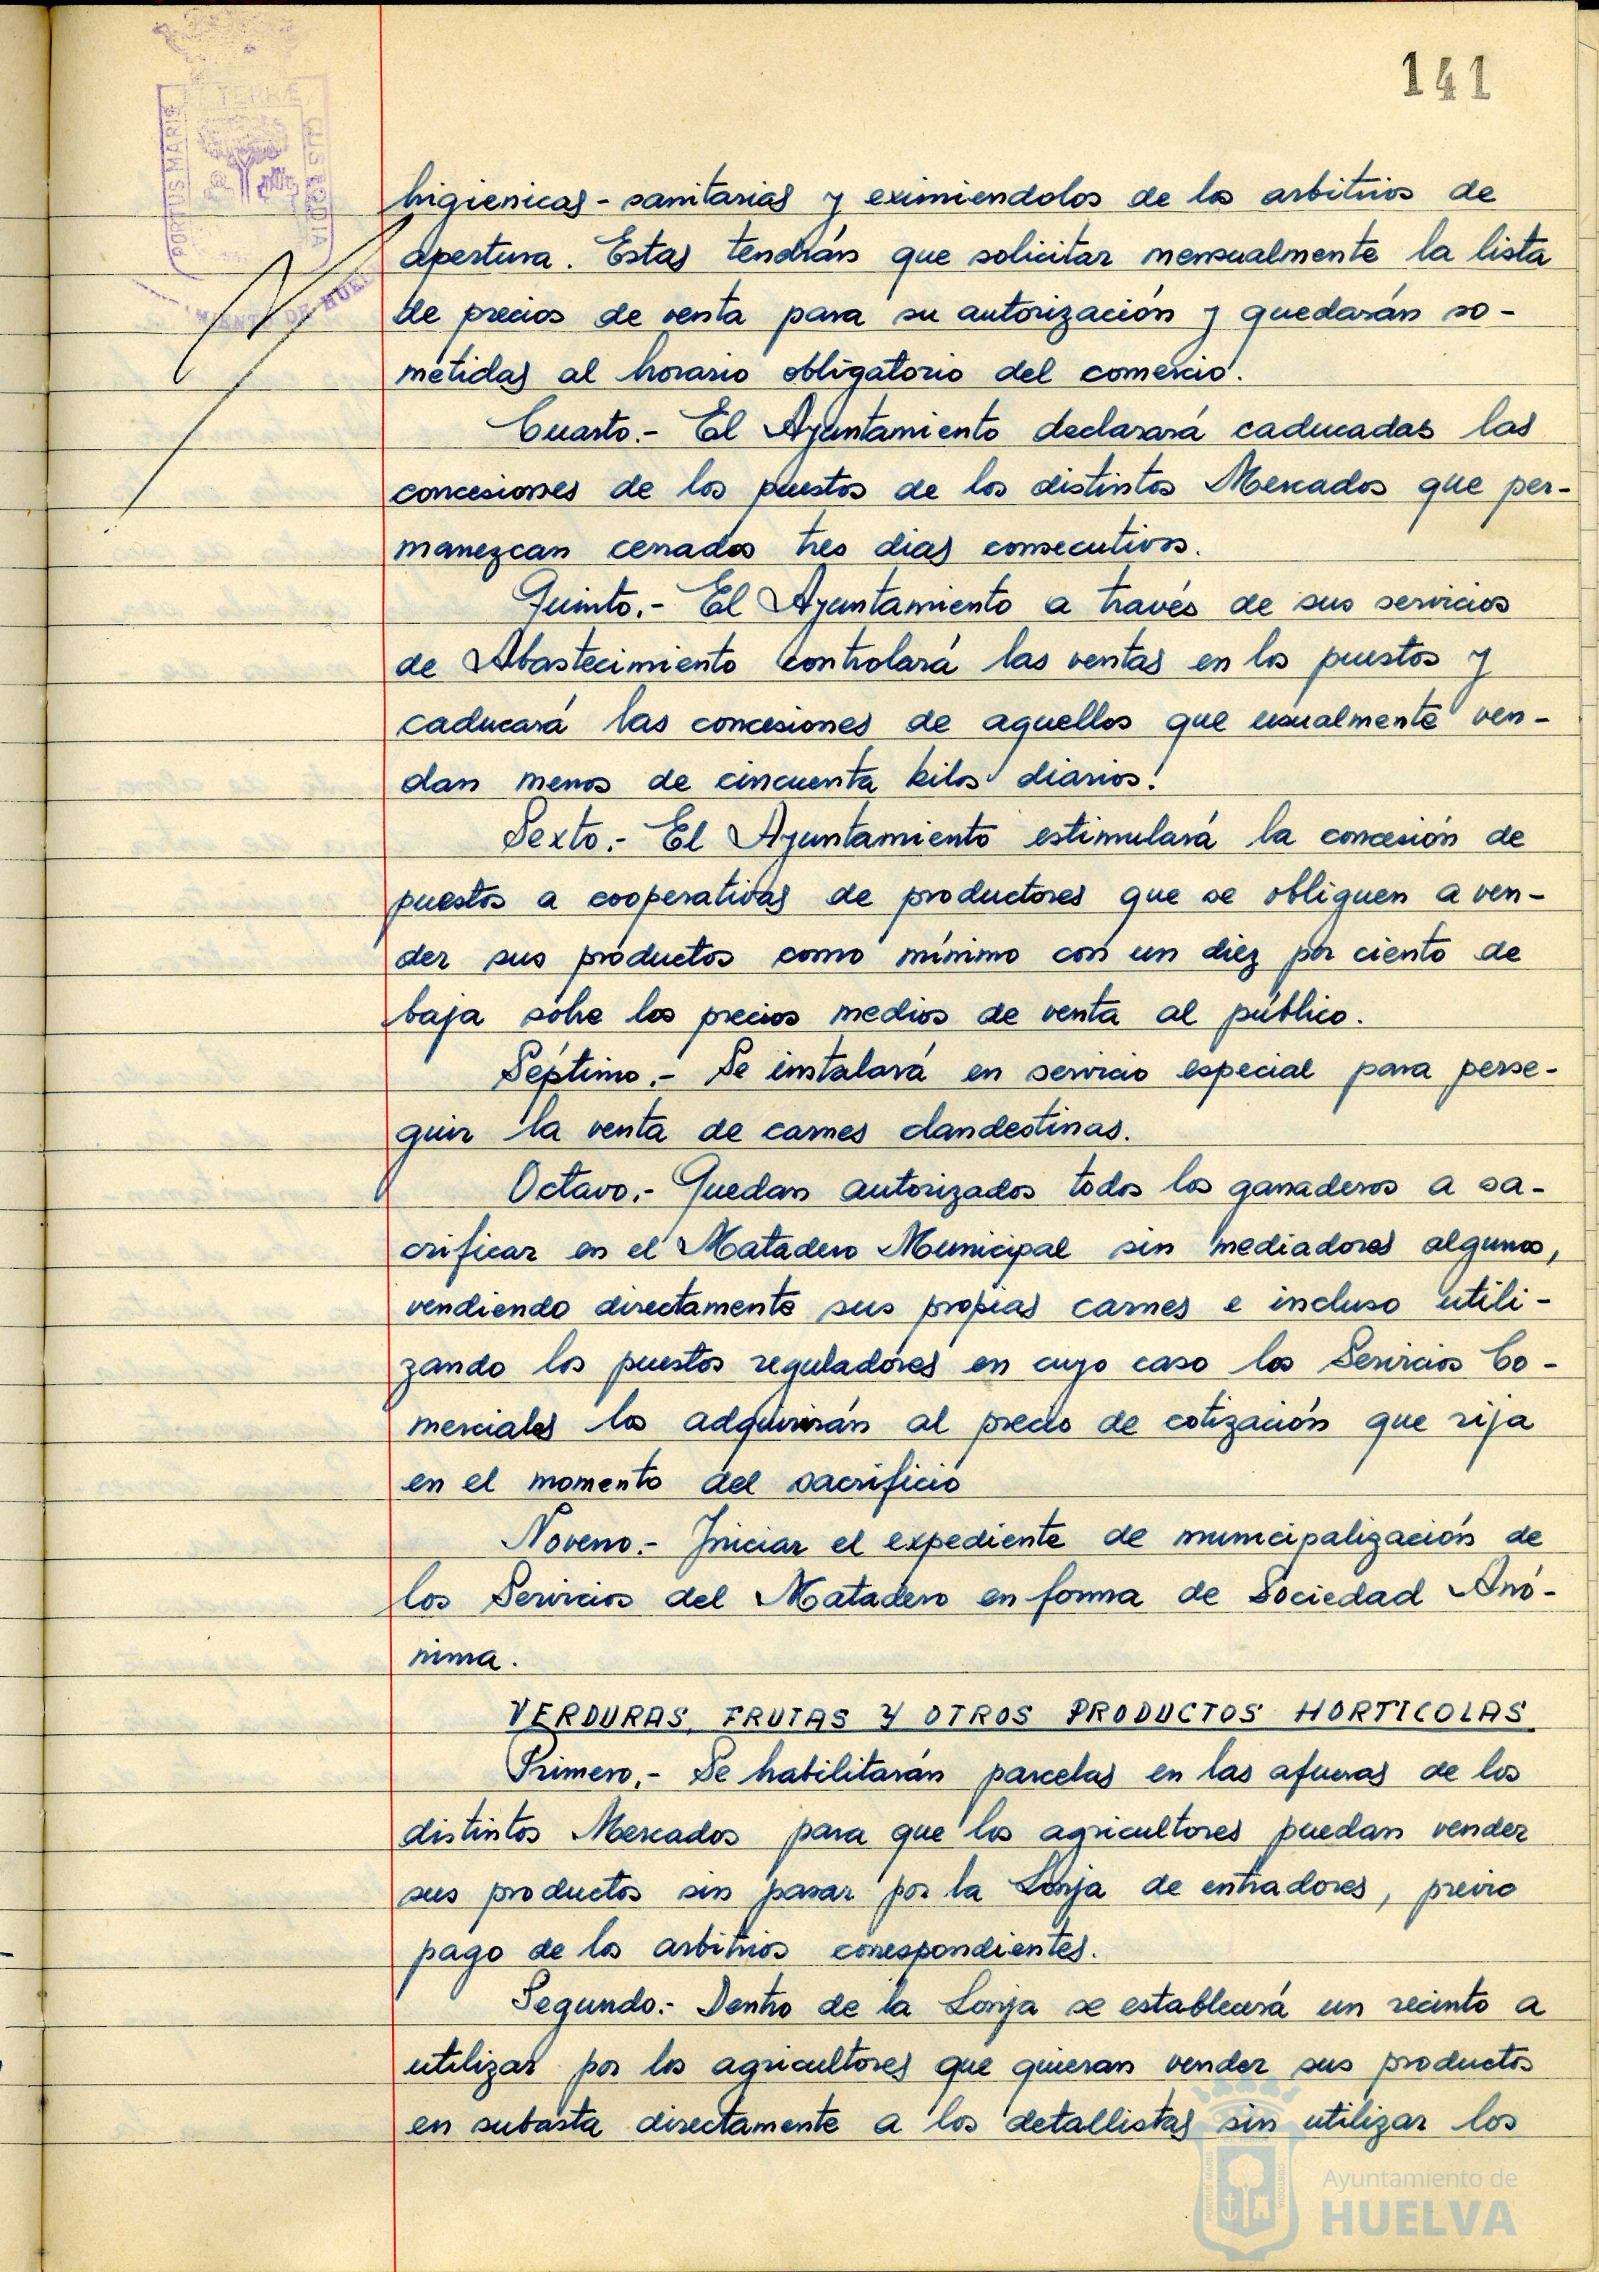 141
TERRÆ
PORTUS MARIS
CUSTODIA
MIENTO DE HUEL
higienicas - sanitarias y eximiendolos de los arbitrios de
apertura. Estas tendrán que solicitar mensualmente la lista
de precios de venta para su autorización y quedarán so-
metidas al horario obligatorio del comercio.
Cuarto.- El Ayuntamiento declarará caducadas las
concesiones de los puestos de los distintos Mercados que per-
manezcan cerrados tres dias consecutivos.
Quinto.- El Ayuntamiento a través de sus servicios
de Abastecimiento controlará las ventas en los puestos y
caducará las concesiones de aquellos que usualmente ven-
dan menos de cincuenta kilos diarios.
Sexto.- El Ayuntamiento estimulará la concesión de
puestos a cooperativas de productores que se obliguen a ven-
der sus productos como mínimo con un diez por ciento de
baja sobre los precios medios de venta al público.
Séptimo.- Se instalará en servicio especial para perse-
guir la venta de carnes clandestinas.
Octavo.- Quedan autorizados todos los ganaderos a sa-
crificar en el Matadero Municipal sin mediadores algunos,
vendiendo directamente sus propias carnes e incluso utili-
zando los puestos reguladores en cuyo caso los Servicios Co-
merciales los adquirirán al precio de cotización que rija
en el momento del sacrificio
Noveno.- Iniciar el expediente de municipalización de
los Servicios del Matadero en forma de Sociedad Anó-
nima.
VERDURAS, FRUTAS Y OTROS PRODUCTOS HORTICOLAS
Primero.- Se habilitarán parcelas en las afueras de los
distintos Mercados para que los agricultores puedan vender
sus productos sin pasar por la Lonja de entradores, previo
pago de los arbitrios correspondientes.
Segundo.- Dentro de la Lonja se establecerá un recinto a
utilizar por los agricultores que quieran vender sus productos
en subasta directamente a los detallistas sin utilizar los
Ayuntamiento de
HUELVA